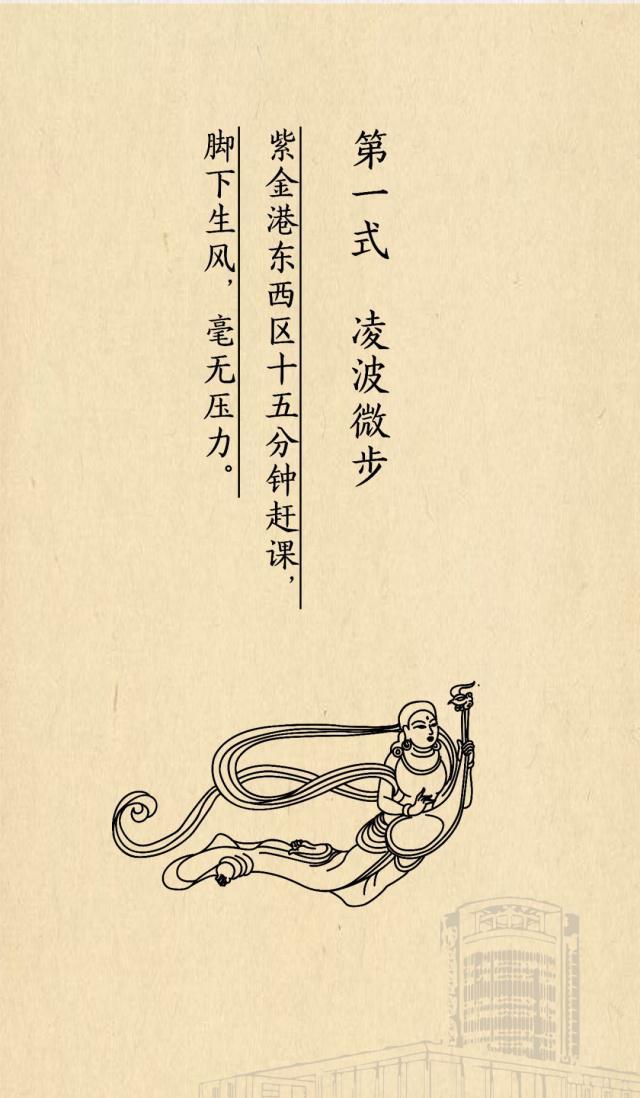 第一式 凌波微步
紫金港东西区十五分钟赶课，
脚下生风，毫无压力。